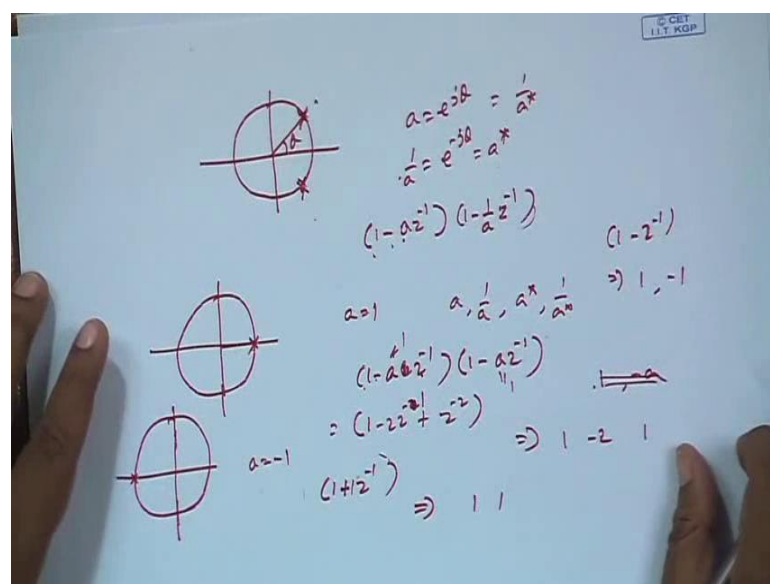 © CET
I.I.T. KGP
θ
a = e^{jθ} = 1/a*
1/a = e^{-jθ} = a*
(1 - az^{-1}) (1 - 1/a z^{-1})
(1 - z^{-1})
⇒ 1, -1
a = 1
a, 1/a, a*, 1/a*
(1 - az^{-1}) (1 - az^{-1})
= (1 - 2z^{-1} + z^{-2})
⇒ 1 -2 1
a = -1
(1 + 1z^{-1})
⇒ 1 1